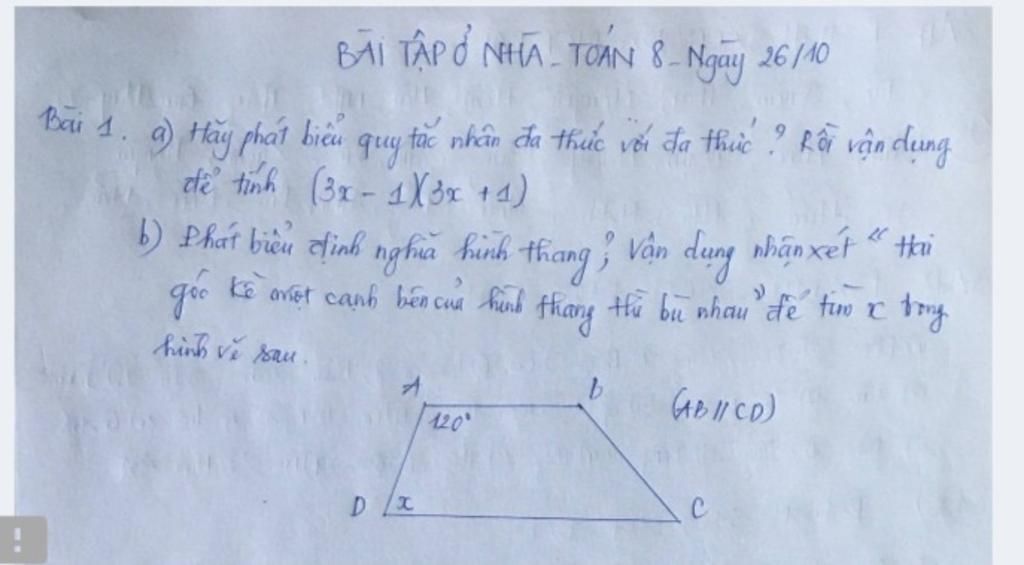 BÀI TẬP Ở NHÀ - TOÁN 8 - Ngày 26/10
Bài 1. a) Hãy phát biểu quy tắc nhân đa thức với đa thức? Rồi vận dụng
để tính (3x - 1)(3x + 1)
b) Phát biểu định nghĩa hình thang; Vận dụng nhận xét "Hai
góc kề một cạnh bên của hình thang thì bù nhau" để tìm x trong
hình vẽ sau.
A b (AB // CD)
120°
D x C
!